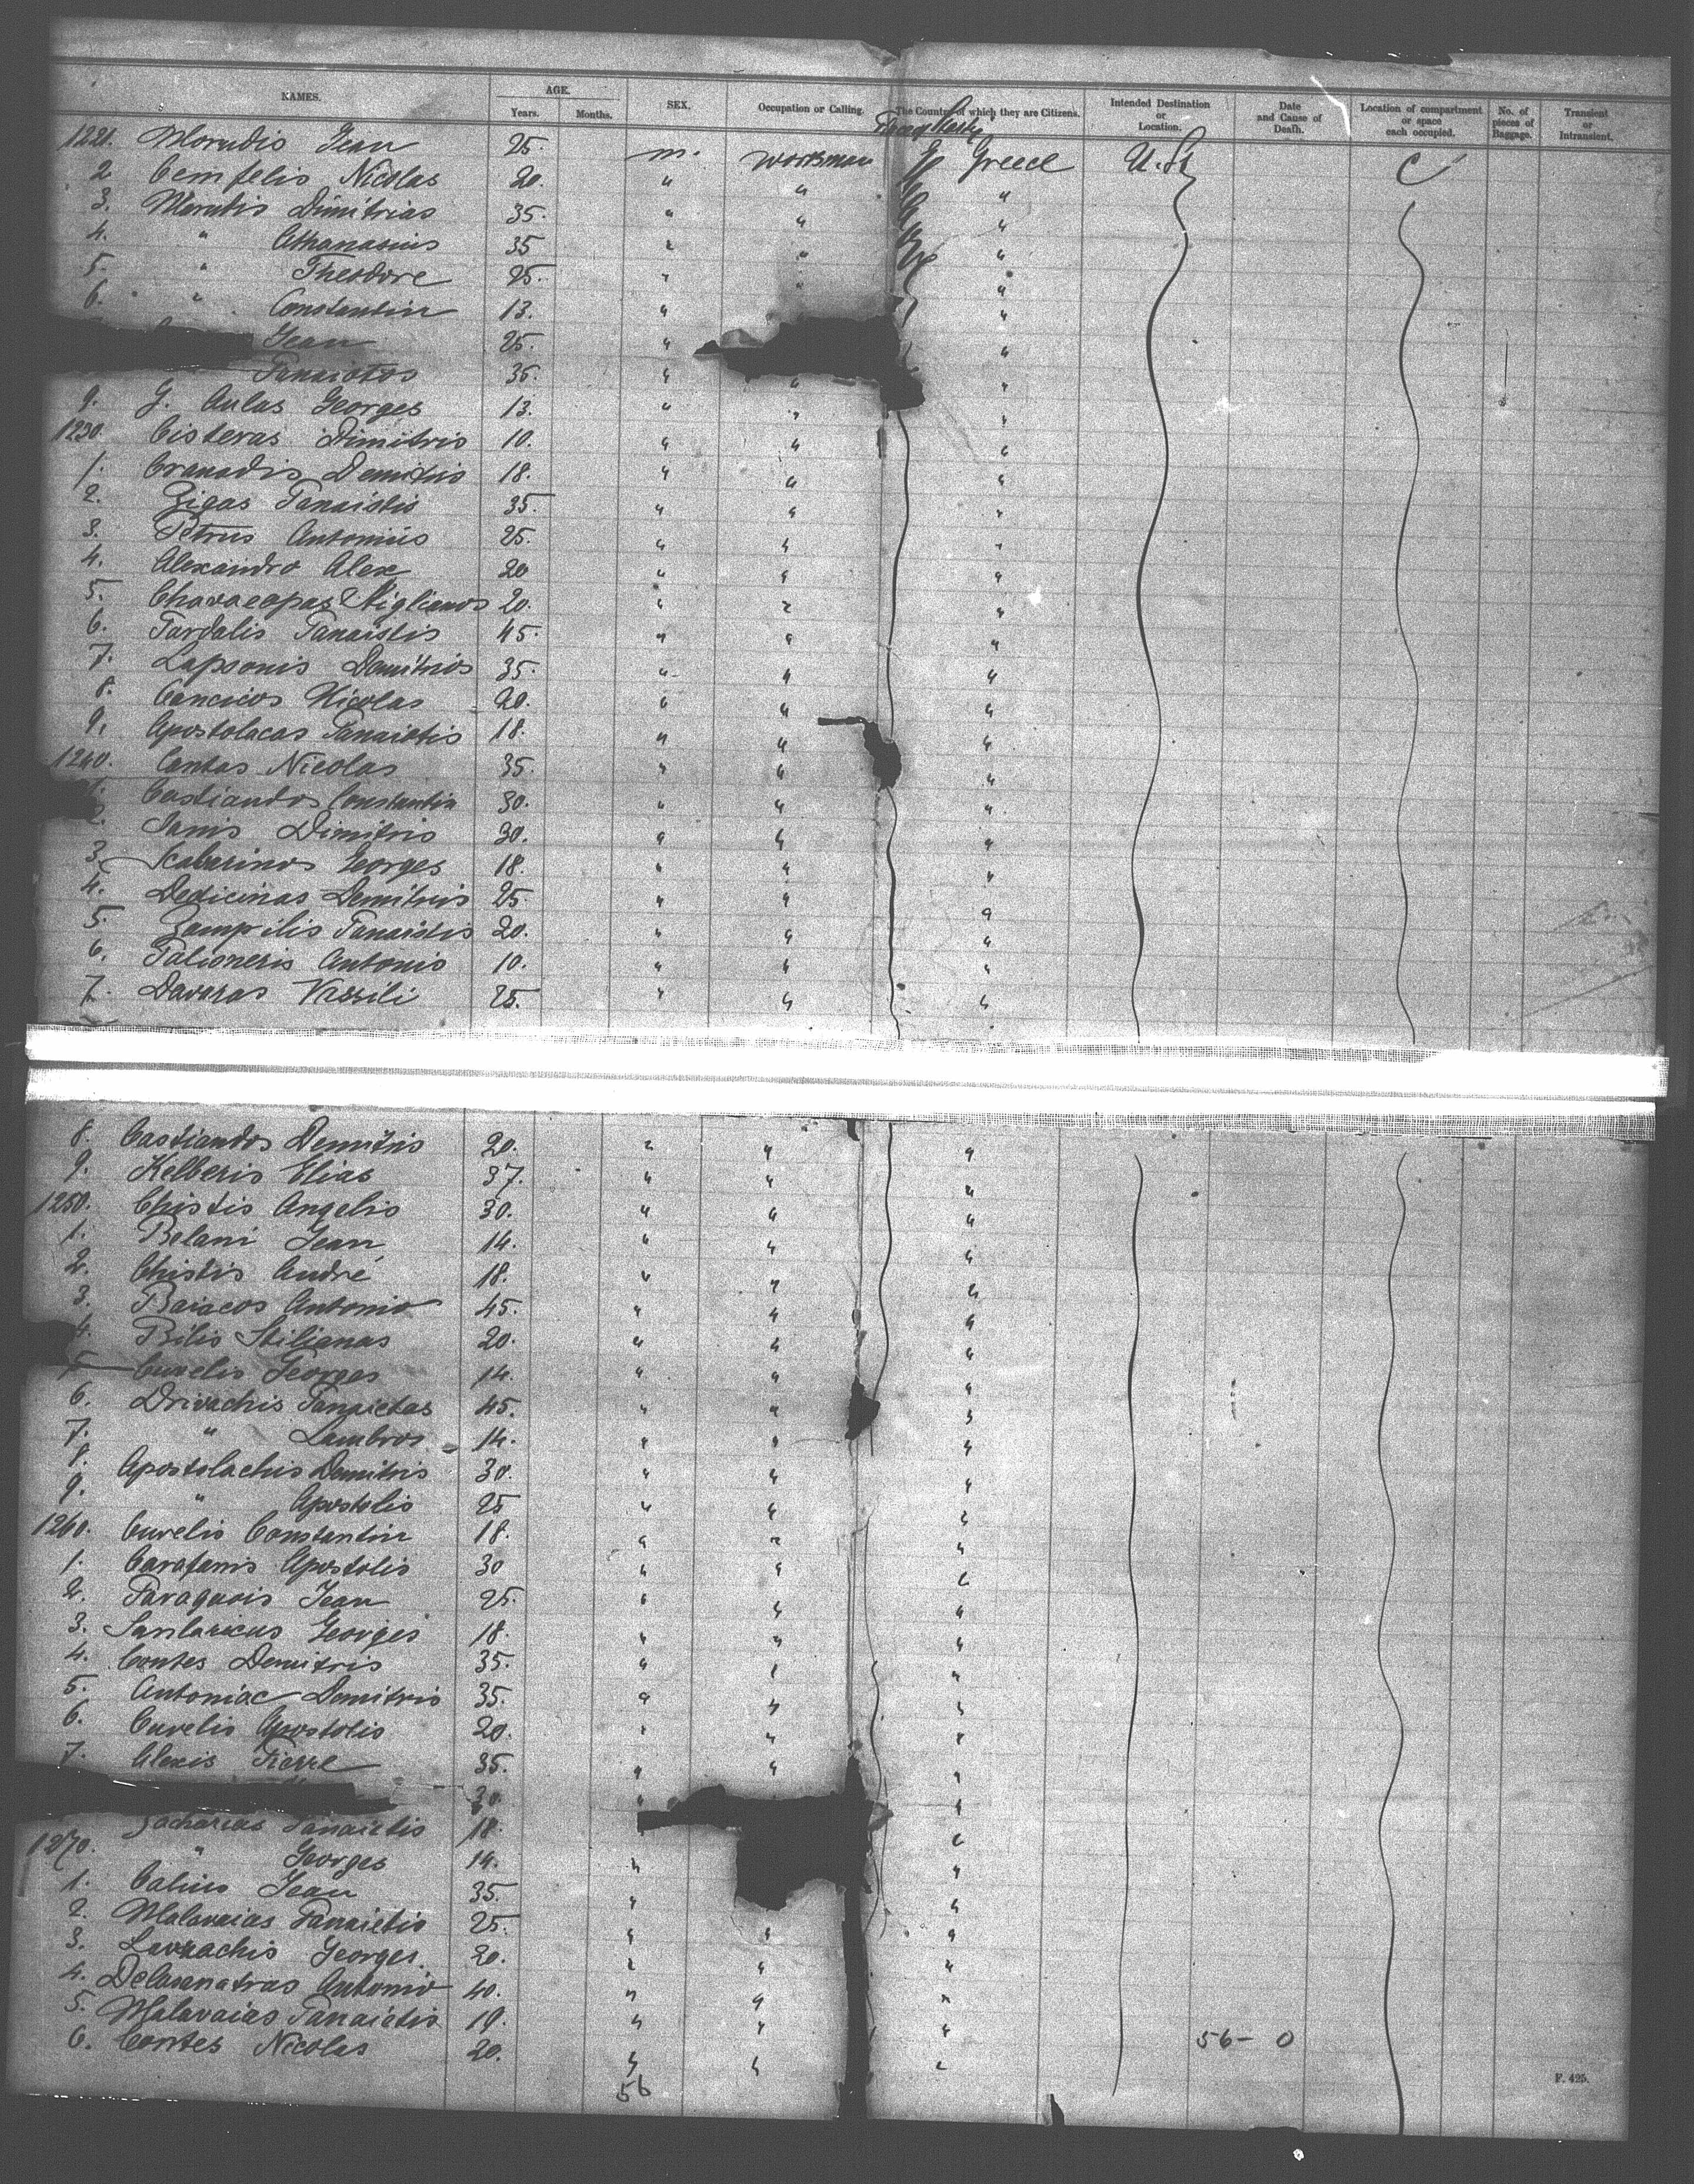 NAMES. AGE. Years. Months. SEX. Occupation or Calling. The Country of which they are Citizens. Intended Destination or Location. Date and Cause of Death. Location of compartment or space each occupied. No. of pieces of Baggage. Transient or Intransient.
1221. Morudis Jean 25. m. workman Greece U. St C
2. Nicolas 20. " " "
3. Morutis Dimitrias 35. " " "
4. " Athanasius 35 " " "
5. " Theodore 25. " " "
6. " Constantin 13. " "
Jean 25. " "
Panaiotos 35. " " "
9. G. Aulas Georges 13. " " "
1230. Cisteras Dimitris 10. " " "
1. Granadis Demitris 18. " " "
2. Zigas Panaistis 35. " " "
3. Petrus Antonius 25. " " "
4. Alexandro Alexe 20 " " "
5. 20. " " "
6. Pardalis Panaistis 45. " " "
7. Lapsonis Demitrios 35. " " "
8. Cancicos Nicolas 20. " " "
9. Apostolacas Panaiotis 18. " " "
1240. Contos Nicolas 35. " " "
Castiandos Constantin 30. " " "
2. Sanis Dimitris 30. " " "
3. Scabarinos Georges 18. " " "
4. Dedicinas Demitris 25. " " "
5. Zampilis Panaistis 20. " " "
6. Palioneris Antonio 10. " " "
7. Daveras Vassili 25. " " "
8. Castiandos Demitris 20. " " "
9. Kelberis Elias 37. " " "
1250. Christis Angelis 30. " " "
1. Belani Jean 14. " " "
2. Christis André 18. " " "
3. Baiacos Antonio 45. " " "
4. Bilis Stilianas 20. " " "
5. Curelis Georges 14. " " "
6. Drivachis Panaietas 45. " " "
7. " Lambros 14. " " "
8. Apostolachis Demitris 30. " " "
9. " Apostolis 25 " " "
1260. Curelis Constantin 18. " " "
1. Carafanis Apostolis 30 " " "
2. Paraguois Jean 25. " " "
3. Sanlaricus Georges 18. " " "
4. Contes Demitris 35. " " "
5. Antoniac Demitris 35. " " "
6. Curelis Apostolis 20. " " "
7. Alexis Pierre 35. " " "
30. " "
Zacharias Panaietis 18. "
1270. " Georges 14. " "
1. Calius Jean 35. " "
2. Malavaias Panaietis 25. " " "
3. Lavrachis Georges. 20. " " "
4. Antonio 40. " " "
5. Malavaias Panaietis 19. " " "
6. Contes Nicolas 20. " " "
56 – 0
56
F. 425.